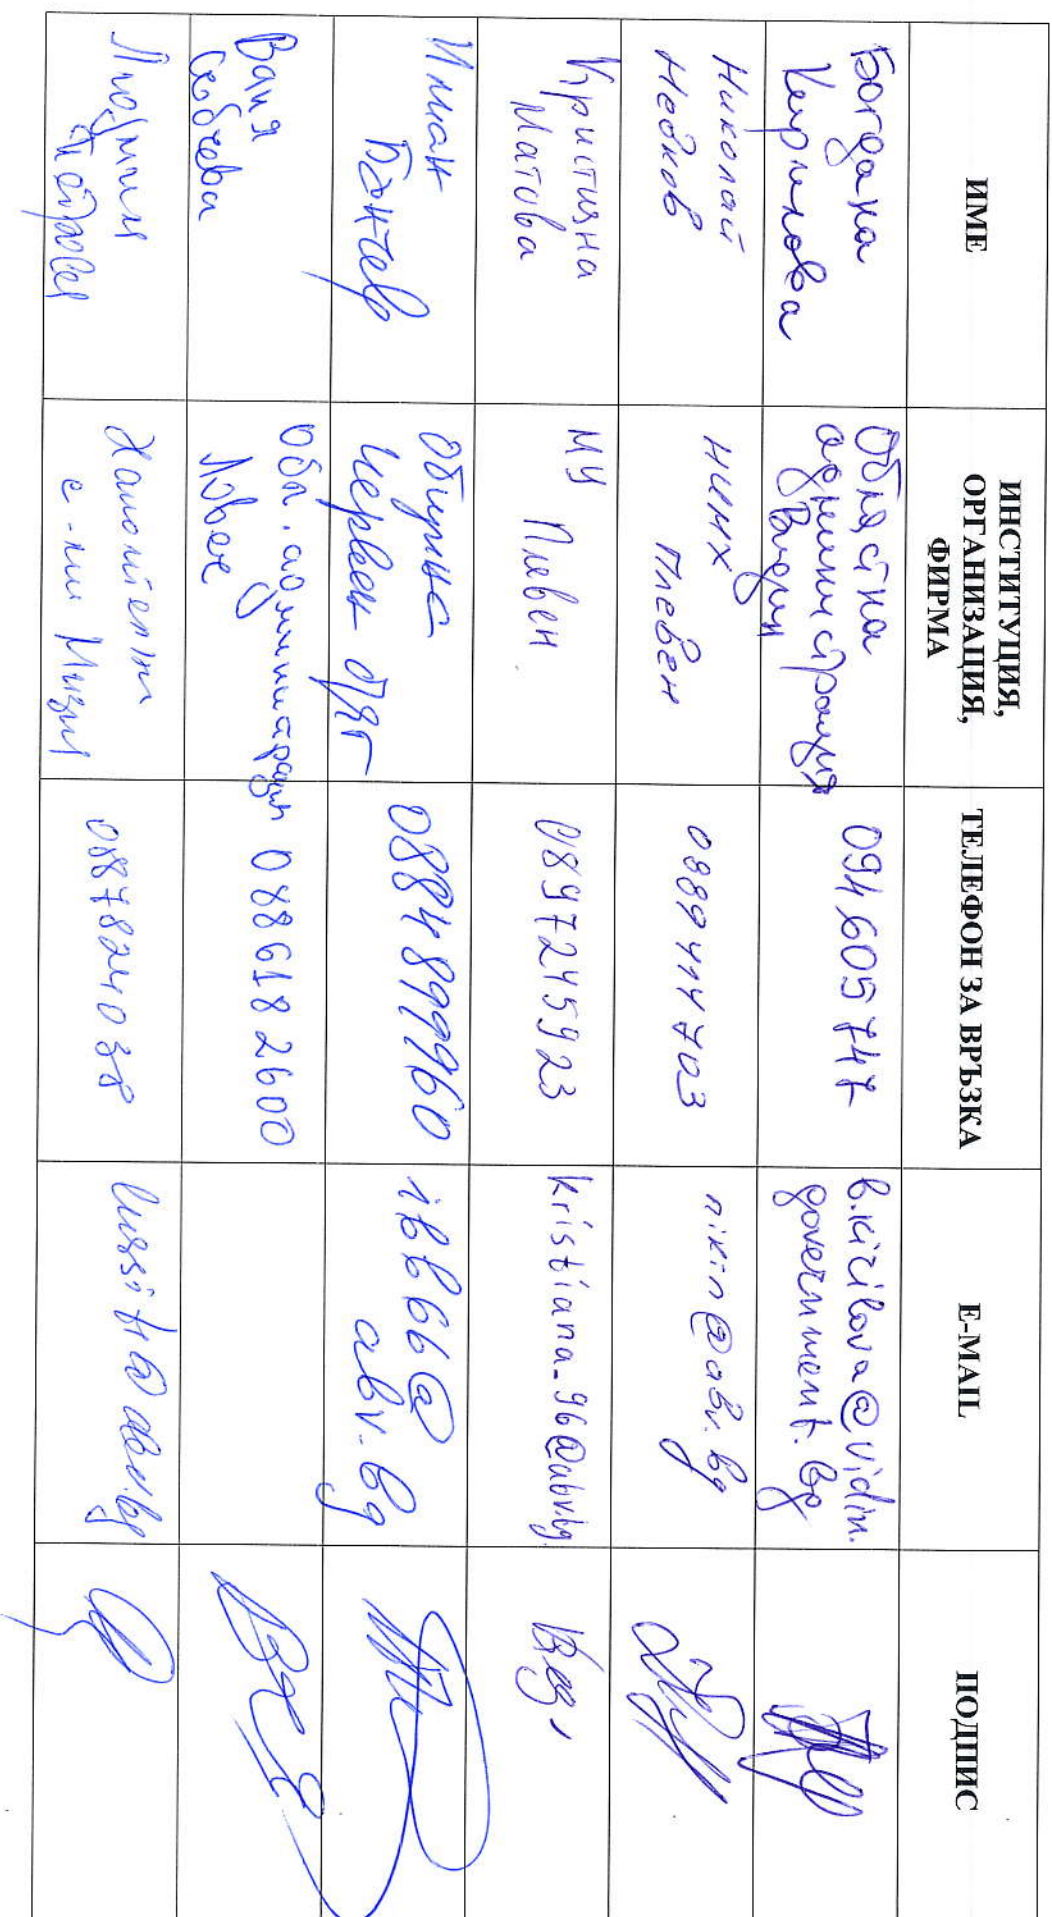 ИМЕ
ИНСТИТУЦИЯ,
ОРГАНИЗАЦИЯ,
ФИРМА
ТЕЛЕФОН ЗА ВРЪЗКА
E-MAIL
ПОДПИС
Богдана
Кирилова
Областна
администрация
Видин
094 605 747
b.kirilova@vidin.
government.bg
Николай
Недков
НИМХ
Плевен
0889414703
nikin@abv.bg
Кристияна
Матова
МУ
Плевен
0897245923
kristiana_96@abv.bg
Илиан
Бънчев
Община
Червен бряг
0884899960
ibb66@
abv.bg
Ваня
Събчева
Обл. администрация
Ловеч
0886182600
Людмил
Петров
Напоителни
с-ми Мизия
0887824038
@abv.bg